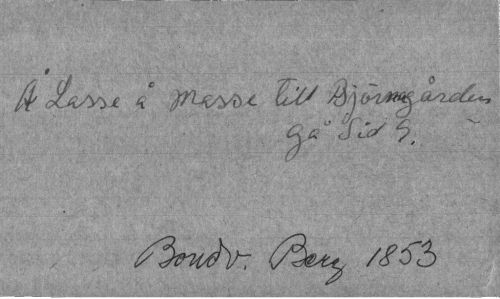 Å Lasse å Masse till Björngården
gå Sid 9.
Bondv. Berg 1853